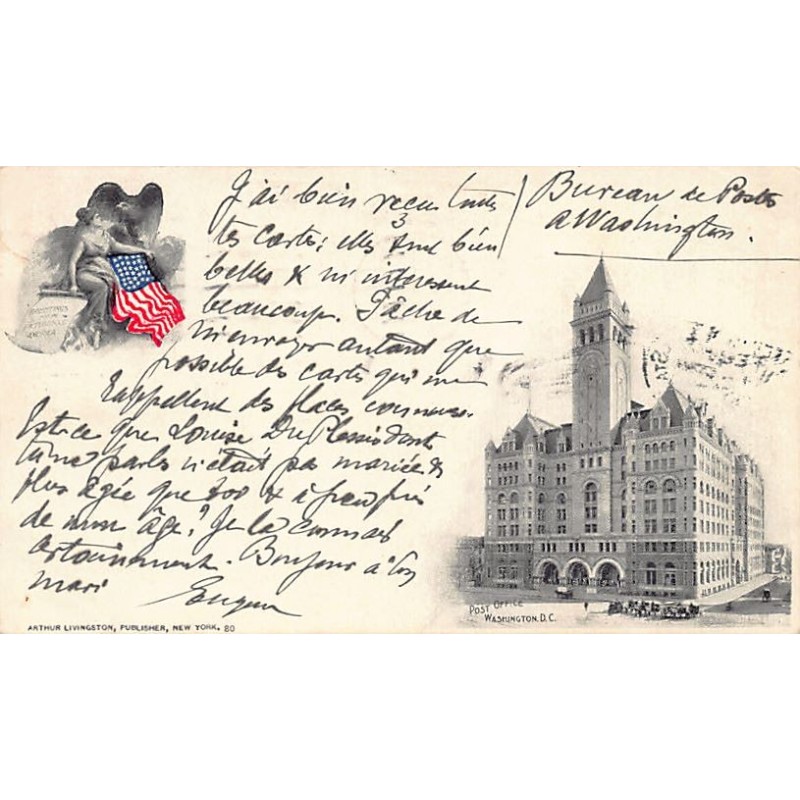 J'ai bien reçu toutes
tes cartes; elles 3 sont bien
belles & m'intéressent
beaucoup. Tâche de
m'envoyer autant que
possible des cartes qui me
rappellent des places connues.
Est-ce que Louise Du Plessis dont
tu me parles n'était pas mariée
plus âgée que toi & à peu près
de mon âge? Je la connais
certainement. Bonjour à ton
mari Eugene
Bureau de Postes
a Washington.
GREETINGS
FROM
PICTURESQUE
AMERICA
POST OFFICE
WASHINGTON, D.C.
ARTHUR LIVINGSTON, PUBLISHER, NEW YORK. 80